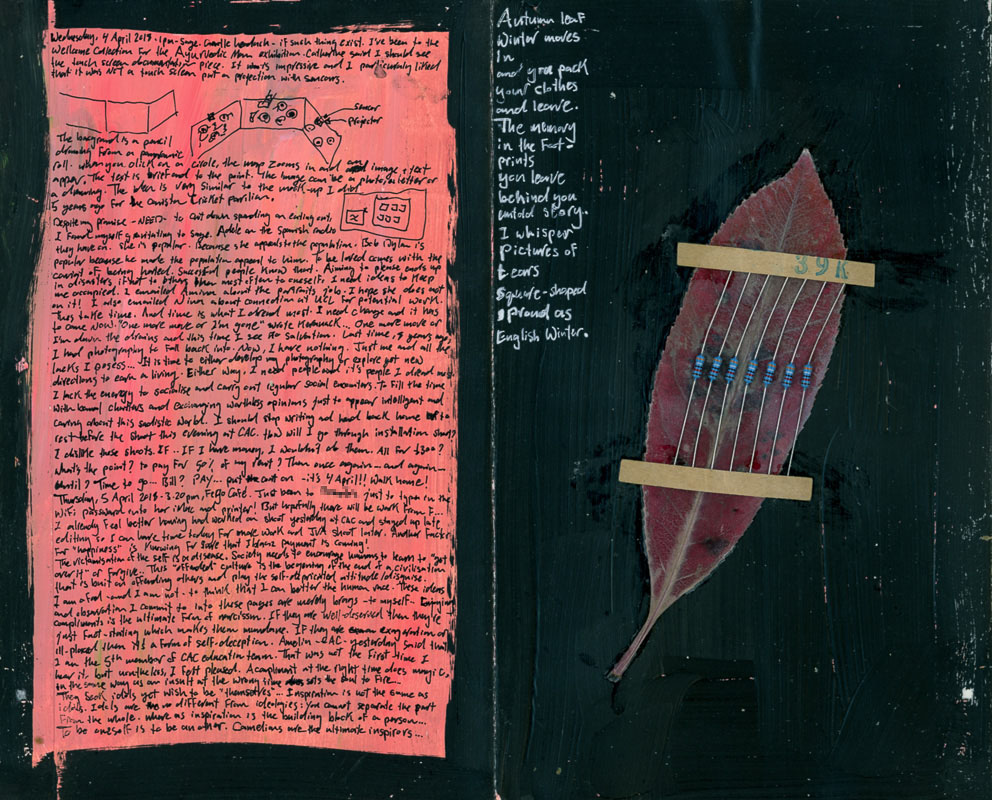 Wednesday, 4 April 2018. 1pm - Sage. - if such thing exist. I've been to the
Wellcome Collection for the Ayurvedic Man exhibition. Catherine said I should see
the touch screen documentation piece. It was impressive and I particularly liked
that it was NOT a touch screen but a projection with sensors.
sensor
projector
The background is a pencil
drawing from a panoramic
roll. when you click on a circle, the map zooms in and an image + text
appear. The text is brief and to the point. The image can be a photo, a letter or
a drawing. The idea is very similar to the mock-up I did
5 years ago for the Cricket Pavilion.
Despite my promise - NEED - to cut down spending on eating out,
I found myself gravitating to Sage. Adele on the Spanish radio
they have on. She is popular. Because she appeals to the population. Bob Dylan is
popular because he made the population appeal to him. To be loved comes with the
caveat of being hated. Successful people know that. Aiming to please ends up
in disasters if not to others then most often to oneself. I need ideas to keep
me occupied. I emailed about the portraits job. I hope she does not
on it! I also emailed Nina about connection at UCL for potential work.
This take time. And time is what I dread most. I need change and it has
to come NOW. "One more move or I'm gone" wrote ... One more move or
I'm down the drains and this time I see no salvation. Last time, 5 years ago,
I had photography to fall back into. Now, I have nothing. Just me and all the
lacks I posess... It is time to either develop my photography or explore yet new
directions to earn a living. Either way, I need people and it's people I dread most.
I lack the energy to socialise and carry out regular social encounters. To fill the time
with banal chatters and exchanging worthless opinions just to appear intelligent and
caring about this sadistic world. I should stop writing and head back home to
rest before the shoot this evening at CAC. How will I go through installation shoot?
I dislike those shoots. IF.. IF I have money, I wouldn't do them. All for £300?
What's the point? to pay for 50% of my rent? Then once again - and again -
Until? Time to go... Bill? PAY... put the coat on - it's 4 April!! Walk home!
Thursday, 5 April 2018 - 3.20pm, Fego Café. Just been to just to type in the
WiFi password into her iMac and printer! But hopefully, there will be work from F...
I already feel better having had worked on shoot yesterday at CAC and stayed up late
editing so I can have time today for more work and JVA shoot later. Another factor
for "happiness" is knowing for sure that payment is coming!
The victimisation of the self is a disease. Society needs to encourage humans to learn to "get
over it" or forgive.. This "offended" culture is the beginning of the end of a civilisation
that is built on offending others and play the self-depricated attitude/disguise.
I am a fool - and I am not - to think that I can better the human race. These ideas
and observation I commit to into these pages are merely brings - to myself - Enjoying
compliments is the ultimate form of narcissism. If they are well-deserved then they're
just fact-stating which makes them mundane. If they are exaggeration or
ill-placed then it's a form of self-deception. - CAC - yesterday said that
I am the 5th member of CAC education team. That was not the first time I
hear it, but nonetheless, I felt pleased. A compliment at the right time does magic,
in the same way as an insult at the wrong time sets the soul to fire...
They seek idols yet wish to be "themselves"... Inspiration is not the same as
idols. Idols are no different from ideologies: You cannot separate the part
from the whole. where as inspiration is the building block of a person...
To be oneself is to be another. Camelions are the ultimate inspirors...
Autumn leaf
Winter moves
in
and you pack
your clothes
and leave.
The memory
in the foot-
prints
you leave
behind you
untold story.
I whisper
pictures of
tears
square-shaped
proud as
English Winter.
39R